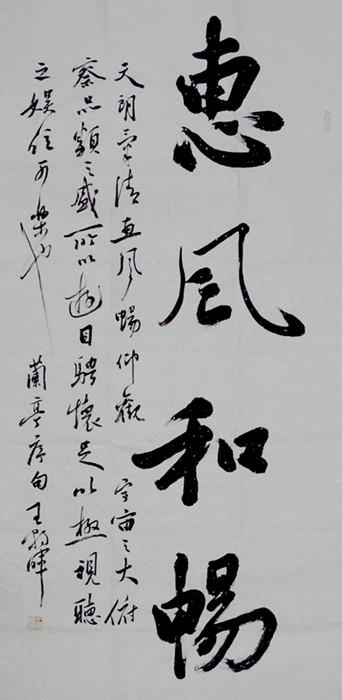 惠风和暢
天朗氣清惠风暢仰觀宇宙之大俯
察品類之盛所以遊目騁懷足以極視聽
之娛信可樂也 蘭亭序句 王